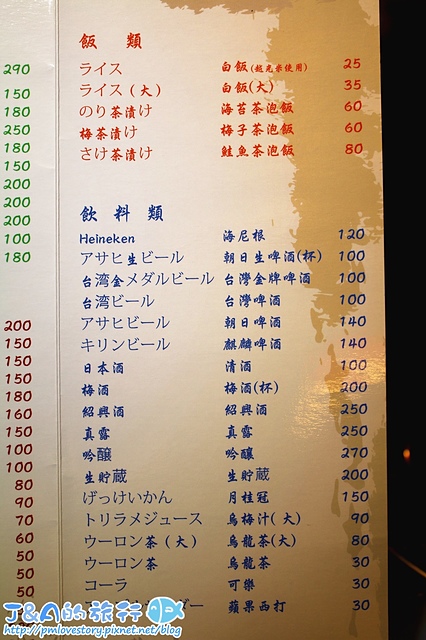 290
150
180
250
180
150
200
200
200
100
180
200
150
150
150
180
160
150
100
100
80
90
70
60
50
50
50
飯 類
ライス 白飯(越光米使用) 25
ライス(大) 白飯(大) 35
のり茶漬け 海苔茶泡飯 60
梅茶漬け 梅子茶泡飯 60
さけ茶漬け 鮭魚茶泡飯 80
飲 料 類
Heineken 海尼根 120
アサヒ生ビール 朝日生啤酒(杯) 100
台湾金メダルビール 台灣金牌啤酒 100
台湾ビール 台灣啤酒 100
アサヒビール 朝日啤酒 140
キリンビール 麒麟啤酒 140
日本酒 清酒 100
梅酒 梅酒(杯) 200
紹興酒 紹興酒 250
真露 真露 250
吟醸 吟釀 270
生貯蔵 生貯蔵 200
げっけいかん 月桂冠 150
トリラメジュース 烏梅汁(大) 90
ウーロン茶(大) 烏龍茶(大) 80
ウーロン茶 烏龍茶 30
コーラ 可樂 30
ダー 蘋果西打 30
J&A的旅行
http://pmlovestory.pixnet.net/blog